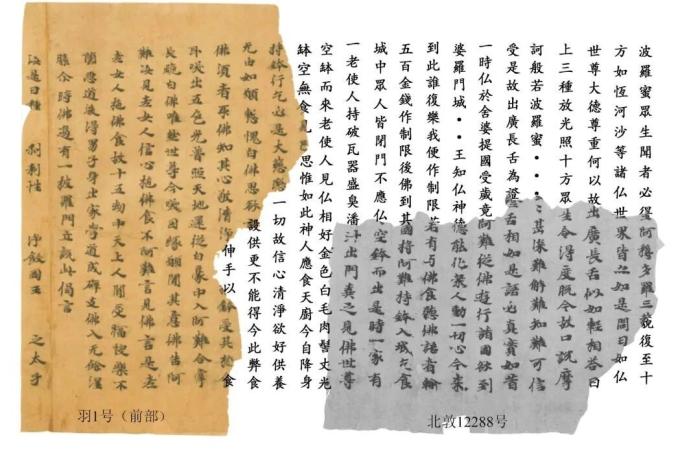 波羅蜜眾生聞者必得阿耨多羅三藐復至十
方如恆河沙等諸仏世界皆如是問曰如仏
世尊大德尊重何以故出廣長舌似如輕相答曰
上三種放光照十方眾生令得度脫今欲口說摩
訶般若波羅蜜・・・甚深難解難知難可信
受是故出廣長舌為證舌相如是語必真實如昔
一時仏於舍婆提國受歲竟阿難從佛遊行諸國欲到
婆羅門城・・王知仏神德能化眾人動一切心今來
到此誰復樂我便作制限若有与佛食聽佛語者輸
五百金錢作制限後佛到其國將阿難持鉢入城乞食
城中眾人皆閉門不應仏空鉢而出是時一家有
一老使人持破瓦器盛臭潘汁出門棄之見佛世尊
空鉢而來老使人見仏相好金色白毛肉髻丈光
鉢空無食見已思惟如此神人應食天廚今自降身
持鉢行乞必是大慈愍一切故信心清淨欲好供養
无由如願慚愧白佛思欲設供更不能得今此弊食
佛須者可取佛知其心敬清淨伸手以鉢受其施食
耳咲出五色光普照天地還從白毫中入阿難合掌
長跪白佛唯然世尊今咲因緣願聞其意佛告阿
難汝見老女人信心施佛食不阿難言見佛言是老
老女人施佛食故十五劫中天上人間受福快樂不
墮惡道後得男子身出家學道成辟支佛入无餘涅
槃尒時佛邊有一婆羅門立說此偈言
汝是日種 刹利姓 淨飯國王 之太子
羽1号（前部）
北敦12288号